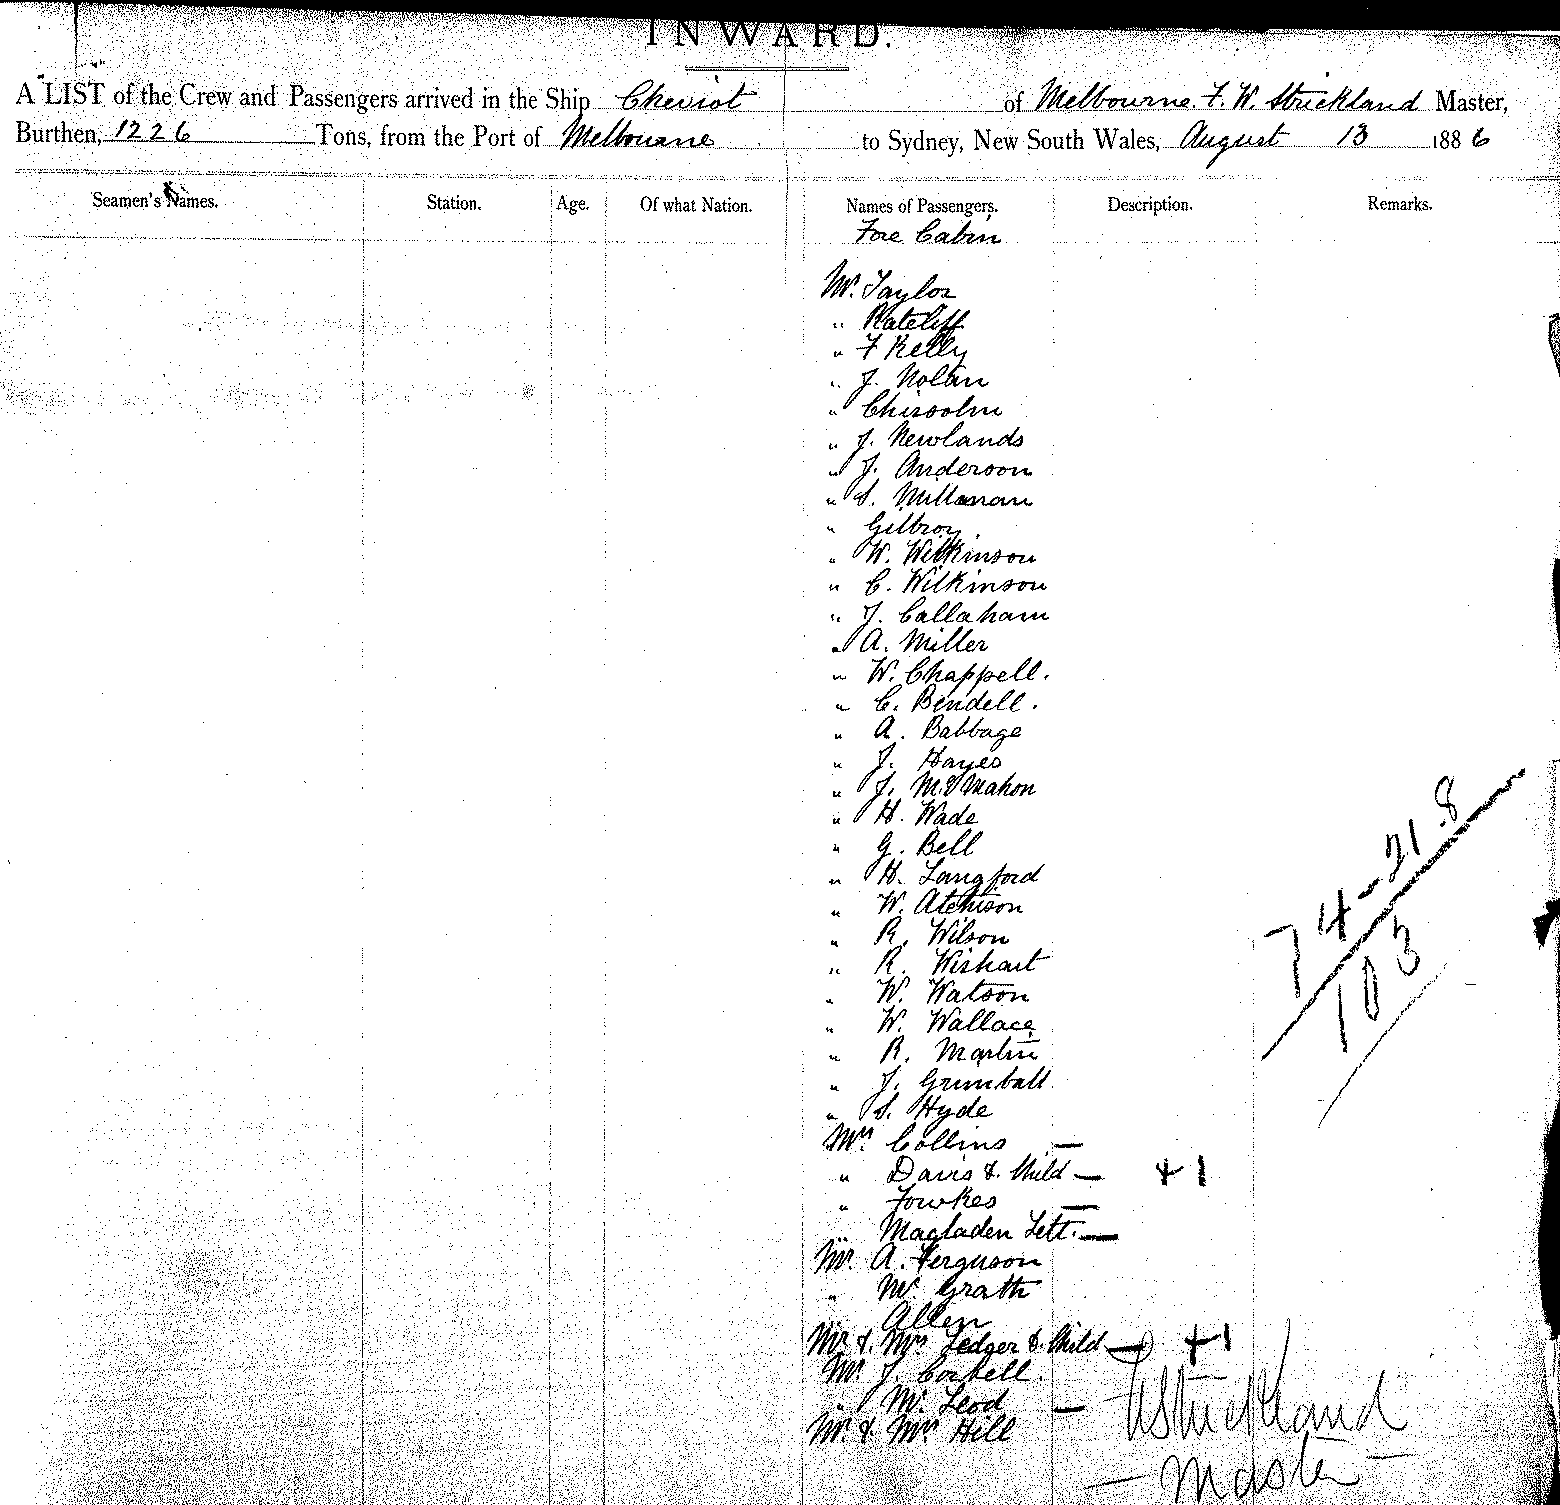 INWARD.
A LIST of the Crew and Passengers arrived in the Ship Cheviot of Melbourne. F. W. Strickland Master,
Burthen, 1226 Tons, from the Port of Melbourne to Sydney, New South Wales, August 13 1886
Seamen's Names. Station. Age. Of what Nation. Names of Passengers. Description. Remarks.
Fore Cabin
Mr. Taylor
" Ratcliff
" F Kelly
" J. Nolan
" Chisolm
" J. Newlands
" J. Anderson
" S.
" Gilbroy
" W. Wilkinson
" C. Wilkinson
" J. Callaham
" A. Miller
" W. Chappell.
" C. Bendell.
" A. Babbage
" J. Hayes
" J. McMahon
" H. Wade
" G. Bell
" H. Langford
" W. Atchison
" R. Wilson
" R. Wishart
" W. Watson
" W. Wallace
" R. Martin
" J. Grimball
" S. Hyde
Mrs Collins —
" Davis & Child — +1
" Fowkes —
" Magladen Lett. —
Mr. A. Ferguson
" Mc Grath
" Allen
Mr. & Mrs Ledger & Child — +1
Mr. J. Corbell.
" Mc Leod
Mr. & Mrs Hill —
74-21.8
103
FWStrickland
— Master —